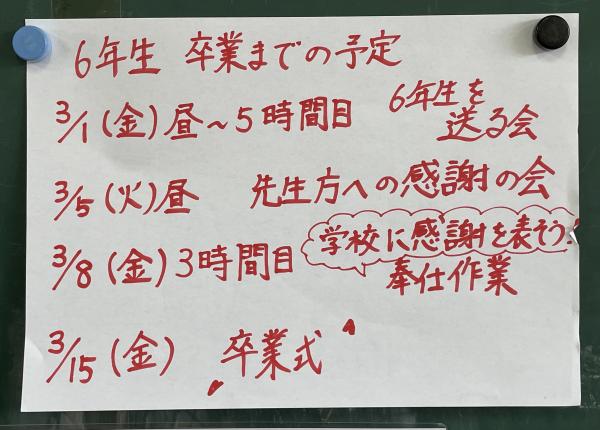 6年生 卒業までの予定
3/1(金)昼～5時間目 6年生を
送る会
3/5(火)昼 先生方への感謝の会
学校に感謝を表そう!
3/8(金)3時間目
奉仕作業
3/15(金) 卒業式